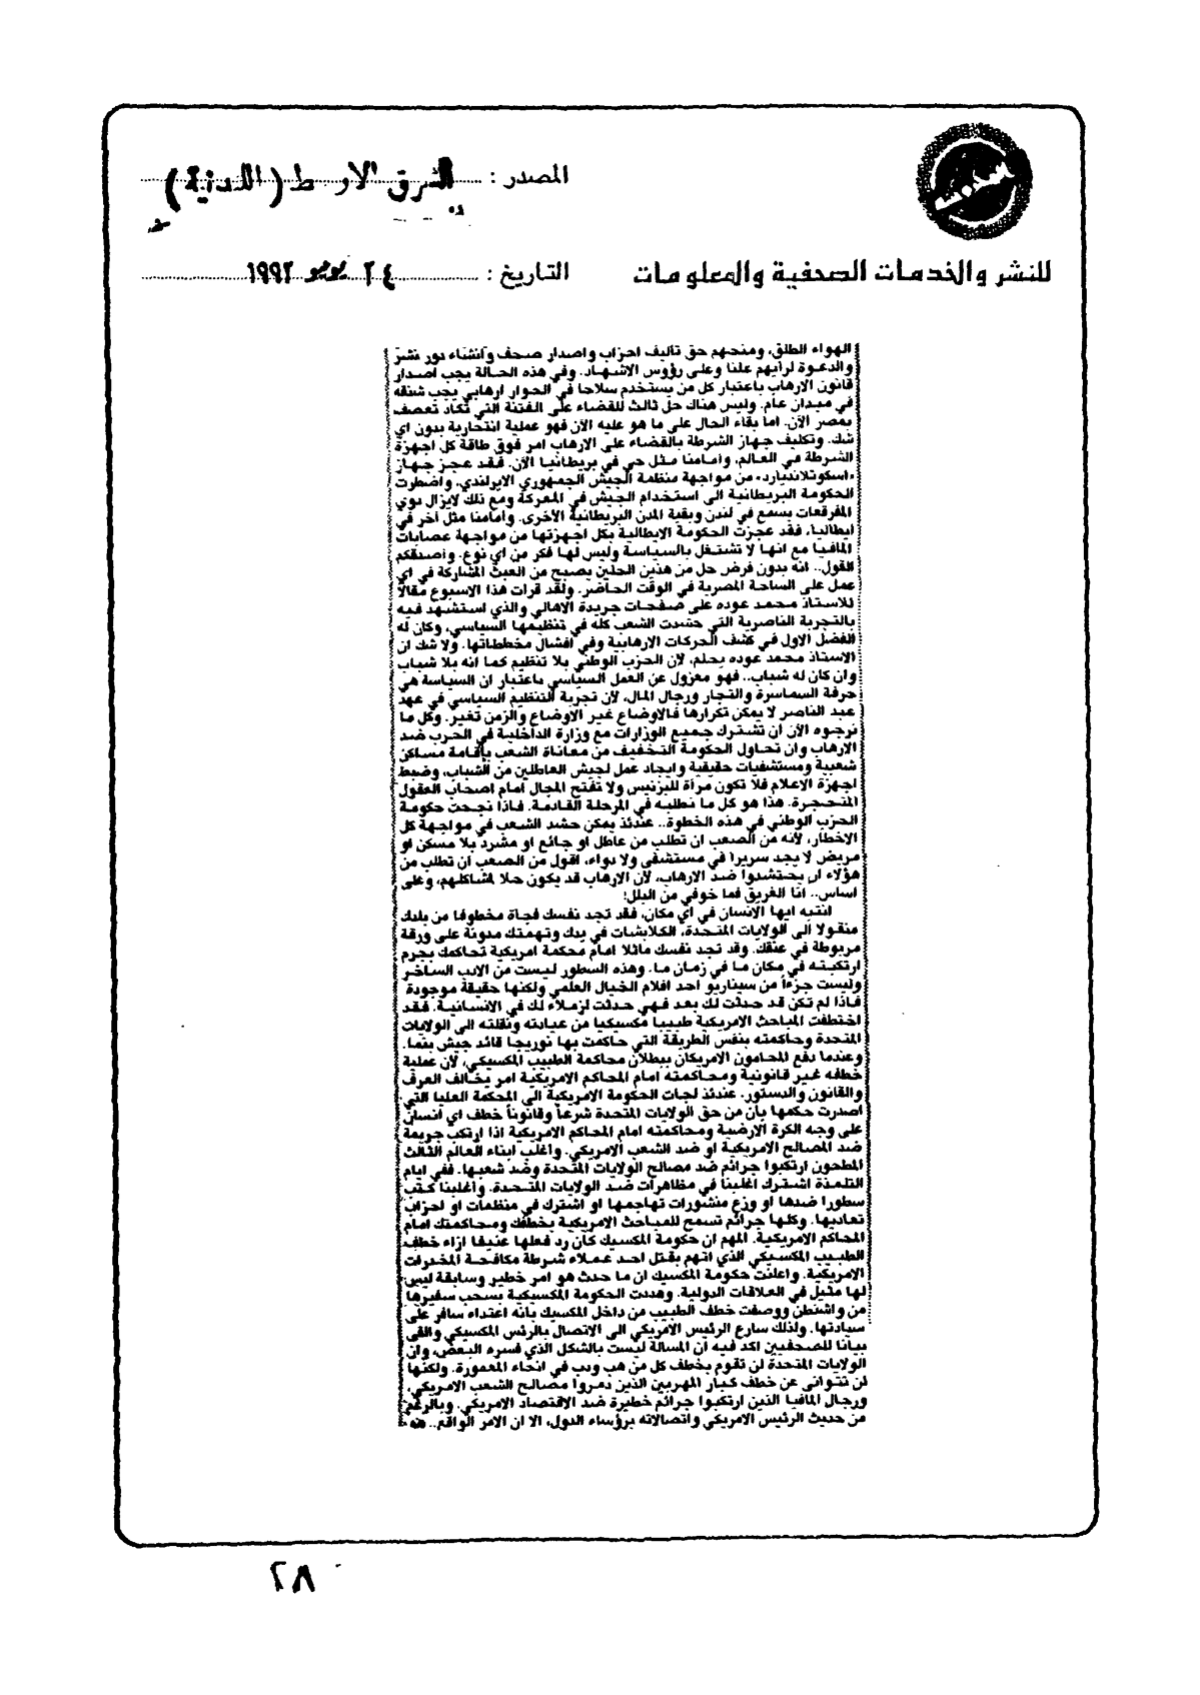 المصدر : الشرق الاوسط (اللندنية)
للنشر والخدمات الصحفية والمعلومات
التاريخ : ٢٤ يونيو ١٩٩٢
الهواء الطلق، ومنحهم حق تأليف احزاب واصدار صحف وانشاء دور نشر
والدعوة لرأيهم علنا وعلى رؤوس الاشهاد. وفي هذه الحالة يجب اصدار
قانون الارهاب باعتبار كل من يستخدم سلاحا في الحوار ارهابي يجب شنقه
في ميدان عام. وليس هناك حل ثالث للقضاء على الفتنة التي تكاد تعصف
بمصر الآن. اما بقاء الحال على ما هو عليه الآن فهو عملية انتحارية بدون اي
شك. وتكليف جهاز الشرطة بالقضاء على الارهاب امر فوق طاقة كل اجهزة
الشرطة في العالم، وامامنا مثل حي في بريطانيا الآن. فقد عجز جهاز
«اسكوتلانديارد» من مواجهة منظمة الجيش الجمهوري الايرلندي، واضطرت
الحكومة البريطانية الى استخدام الجيش في المعركة ومع ذلك لايزال دوي
المفرقعات يسمع في لندن وبقية المدن البريطانية الأخرى. وامامنا مثل آخر في
ايطاليا، فقد عجزت الحكومة الايطالية بكل اجهزتها من مواجهة عصابات
المافيا مع انها لا تشتغل بالسياسة وليس لها فكر من اي نوع. واصدقكم
القول.. انه بدون فرض حل من هذين الحلين يصبح من العبث المشاركة في اي
عمل على الساحة المصرية في الوقت الحاضر. ولقد قرات هذا الاسبوع مقالا
للاستاذ محمد عوده على صفحات جريدة الاهالي والذي استشهد فيه
بالتجربة الناصرية التي حشدت الشعب كله في تنظيمها السياسي، وكان له
الفضل الاول في كشف الحركات الارهابية وفي افشال مخططاتها. ولا شك ان
الاستاذ محمد عوده يحلم، لأن الحزب الوطني بلا تنظيم كما انه بلا شباب
وان كان له شباب.. فهو معزول عن العمل السياسي باعتبار ان السياسة هي
حرفة السماسرة والتجار ورجال المال، لأن تجربة التنظيم السياسي في عهد
عبد الناصر لا يمكن تكرارها فالاوضاع غير الاوضاع والزمن تغير. وكل ما
نرجوه الآن ان تشترك جميع الوزارات مع وزارة الداخلية في الحرب ضد
الارهاب وان تحاول الحكومة التخفيف من معاناة الشعب باقامة مساكن
شعبية ومستشفيات حقيقية وايجاد عمل لجيش العاطلين من الشباب، وضبط
اجهزة الاعلام فلا تكون مرآة للبزنيس ولا تفتح المجال امام اصحاب العقول
المتحجرة. هذا هو كل ما نطلبه في المرحلة القادمة. فاذا نجحت حكومة
الحزب الوطني في هذه الخطوة.. عندئذ يمكن حشد الشعب في مواجهة كل
الاخطار، لأنه من الصعب ان تطلب من عاطل او جائع او مشرد بلا مسكن او
مريض لا يجد سريرا في مستشفى ولا دواء، اقول من الصعب ان تطلب من
هؤلاء ان يحتشدوا ضد الارهاب، لأن الارهاب قد يكون حلا لمشاكلهم، وعلى
اساس.. انا الغريق فما خوفي من البلل!
انتبه ايها الانسان في اي مكان، فقد تجد نفسك فجأة مخطوفا من بلدك
منقولا الى الولايات المتحدة، الكلابشات في يدك وتهمتك مدونة على ورقة
مربوطة في عنقك. وقد تجد نفسك ماثلا امام محكمة امريكية تحاكمك بجرم
ارتكبته في مكان ما في زمان ما. وهذه السطور ليست من الادب الساخر
وليست جزءاً من سيناريو احد افلام الخيال العلمي ولكنها حقيقة موجودة
فاذا لم تكن قد حدثت لك بعد فهي حدثت لزملاء لك في الانسانية. فقد
اختطفت المباحث الامريكية طبيبا مكسيكيا من عيادته ونقلته الى الولايات
المتحدة وحاكمته بنفس الطريقة التي حاكمت بها نوريجا قائد جيش بنما.
وعندما دفع المحامون الامريكان ببطلان محاكمة الطبيب المكسيكي، لأن عملية
خطفه غير قانونية ومحاكمته امام المحاكم الامريكية امر يخالف العرف
والقانون والدستور. عندئذ لجات الحكومة الامريكية الى المحكمة العليا التي
اصدرت حكمها بأن من حق الولايات المتحدة شرعاً وقانوناً خطف اي انسان
على وجه الكرة الارضية ومحاكمته امام المحاكم الامريكية اذا ارتكب جريمة
ضد المصالح الامريكية او ضد الشعب الامريكي. واغلب ابناء العالم الثالث
المطحون ارتكبوا جرائم ضد مصالح الولايات المتحدة وضد شعبها. ففي ايام
التلمذة اشترك اغلبنا في مظاهرات ضد الولايات المتحدة. واغلبنا كتب
سطورا ضدها او وزع منشورات تهاجمها او اشترك في منظمات او احزاب
تعاديها. وكلها جرائم تسمح للمباحث الامريكية بخطفك ومحاكمتك امام
المحاكم الامريكية. المهم ان حكومة المكسيك كان رد فعلها عنيفا ازاء خطف
الطبيب المكسيكي الذي اتهم بقتل احد عملاء شرطة مكافحة المخدرات
الامريكية. واعلنت حكومة المكسيك ان ما حدث هو امر خطير وسابقة ليس
لها مثيل في العلاقات الدولية. وهددت الحكومة المكسيكية بسحب سفيرها
من واشنطن ووصفت خطف الطبيب من داخل المكسيك بأنه اعتداء سافر على
سيادتها. ولذلك سارع الرئيس الامريكي الى الاتصال بالرئس المكسيكي والقى
بيانا للصحفيين اكد فيه ان المسالة ليست بالشكل الذي فسره البعض، وان
الولايات المتحدة لن تقوم بخطف كل من هب ودب في انحاء المعمورة. ولكنها
لن تتوانى عن خطف كبار المهربين الذين دمروا مصالح الشعب الامريكي،
ورجال المافيا الذين ارتكبوا جرائم خطيرة ضد الاقتصاد الامريكي. وبالرغم
من حديث الرئيس الامريكي واتصالاته برؤساء الدول، الا ان الامر الواقع.. هو
٢٨